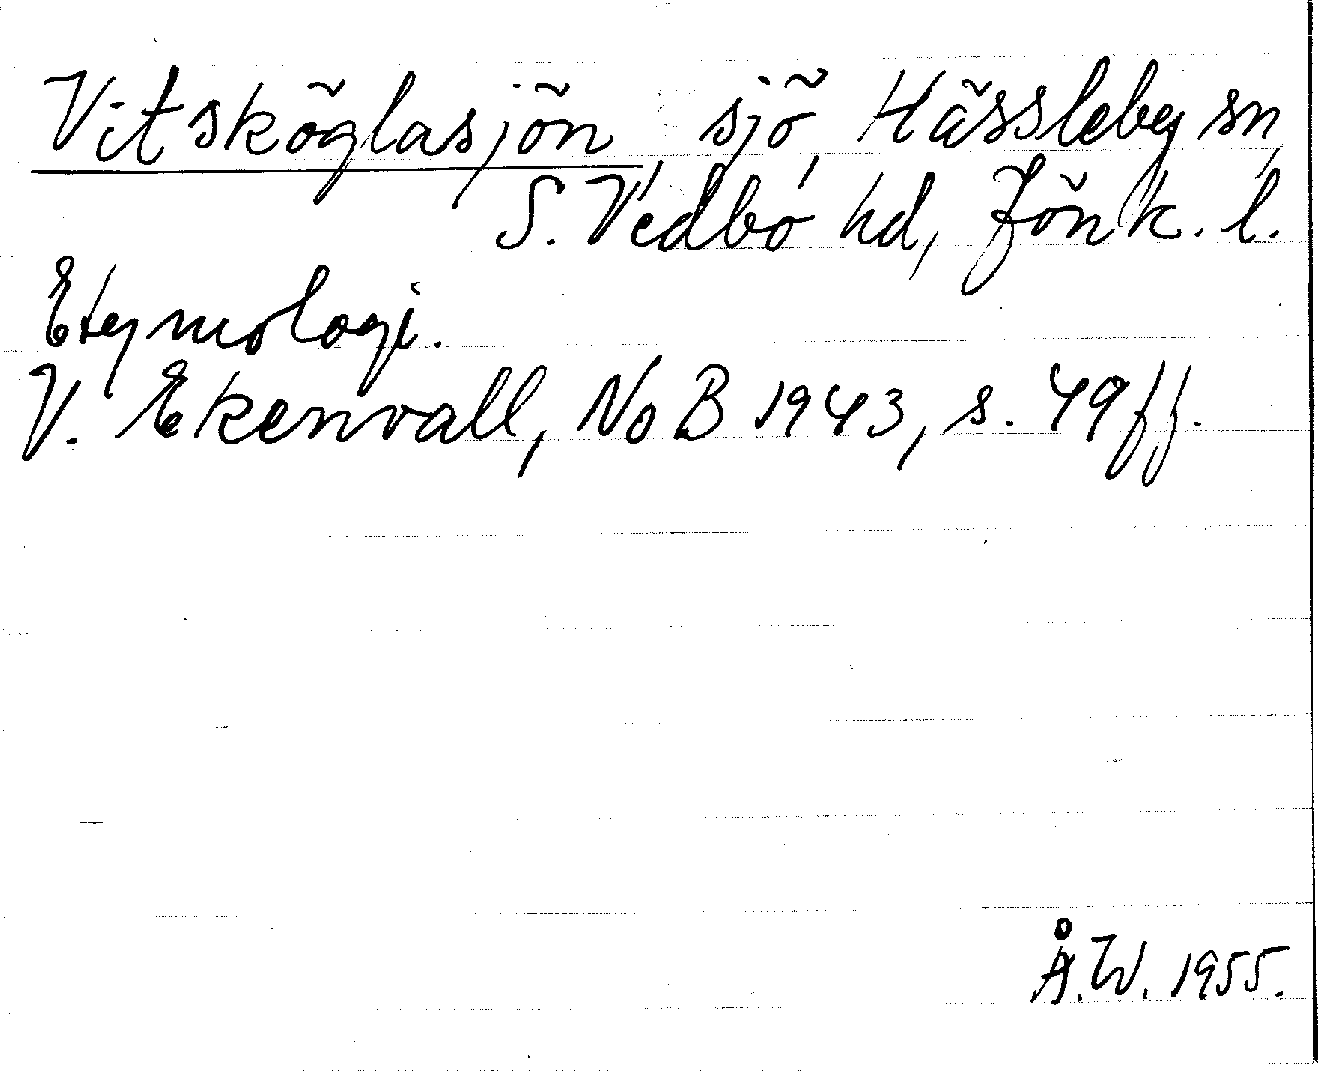 Vitsköglasjön, sjö, Hässleby sn,
S. Vedbo hd, Jönk. l.
Etymologi.
V. Ekenvall, NoB 1943, s. 49ff.
Å.W. 1955.